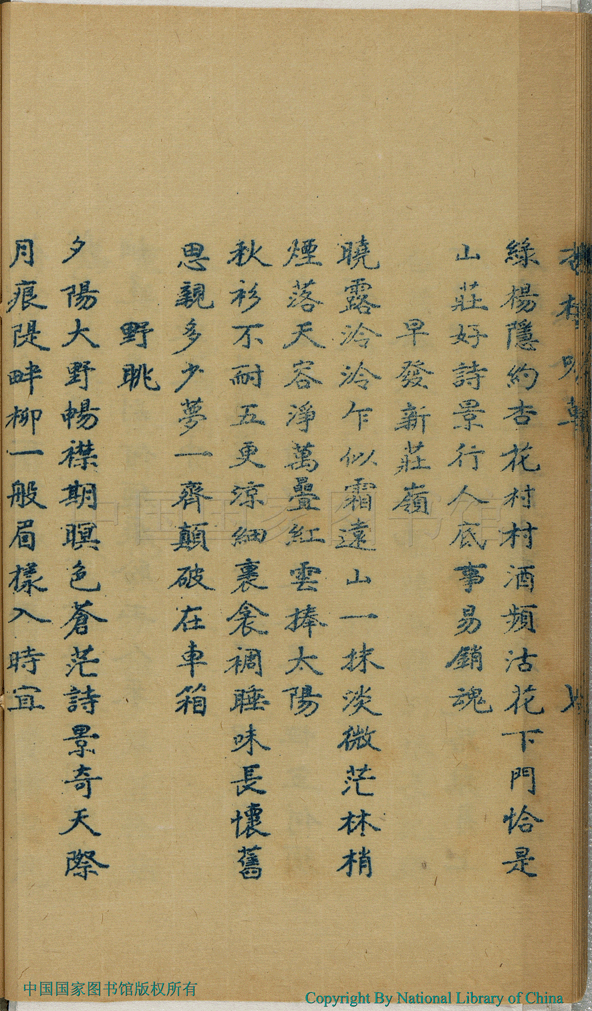 綠楊隱約杏花村村酒頻沽花下門恰是
山莊好詩景行人底事易銷魂
早發新莊嶺
曉露泠泠乍似霜遠山一抹淡微茫林梢
煙落天容淨萬疊紅雲捧太陽
秋衫不耐五更涼細裹衾裯睡味長懷舊
思親多少夢一齊顛破在車箱
野眺
夕陽大野暢襟期暝色蒼茫詩景奇天際
月痕隄畔柳一般眉樣入時宜
中国国家图书馆
中国国家图书馆版权所有
Copyright By National Library of China